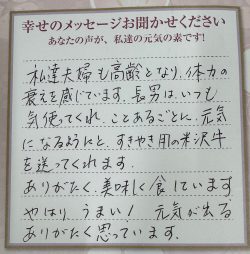 幸せのメッセージお聞かせください
あなたの声が、私達の元気の素です!
私達夫婦も高齢となり、体力の
衰えを感じています。長男は、いつも
気使ってくれ、ことあるごとに、元気
になるようにと、すきやき用の米沢牛
を送ってくれます。
ありがたく、美味しく食しています
やはり、うまい! 元気が出る
ありがたく思っています。